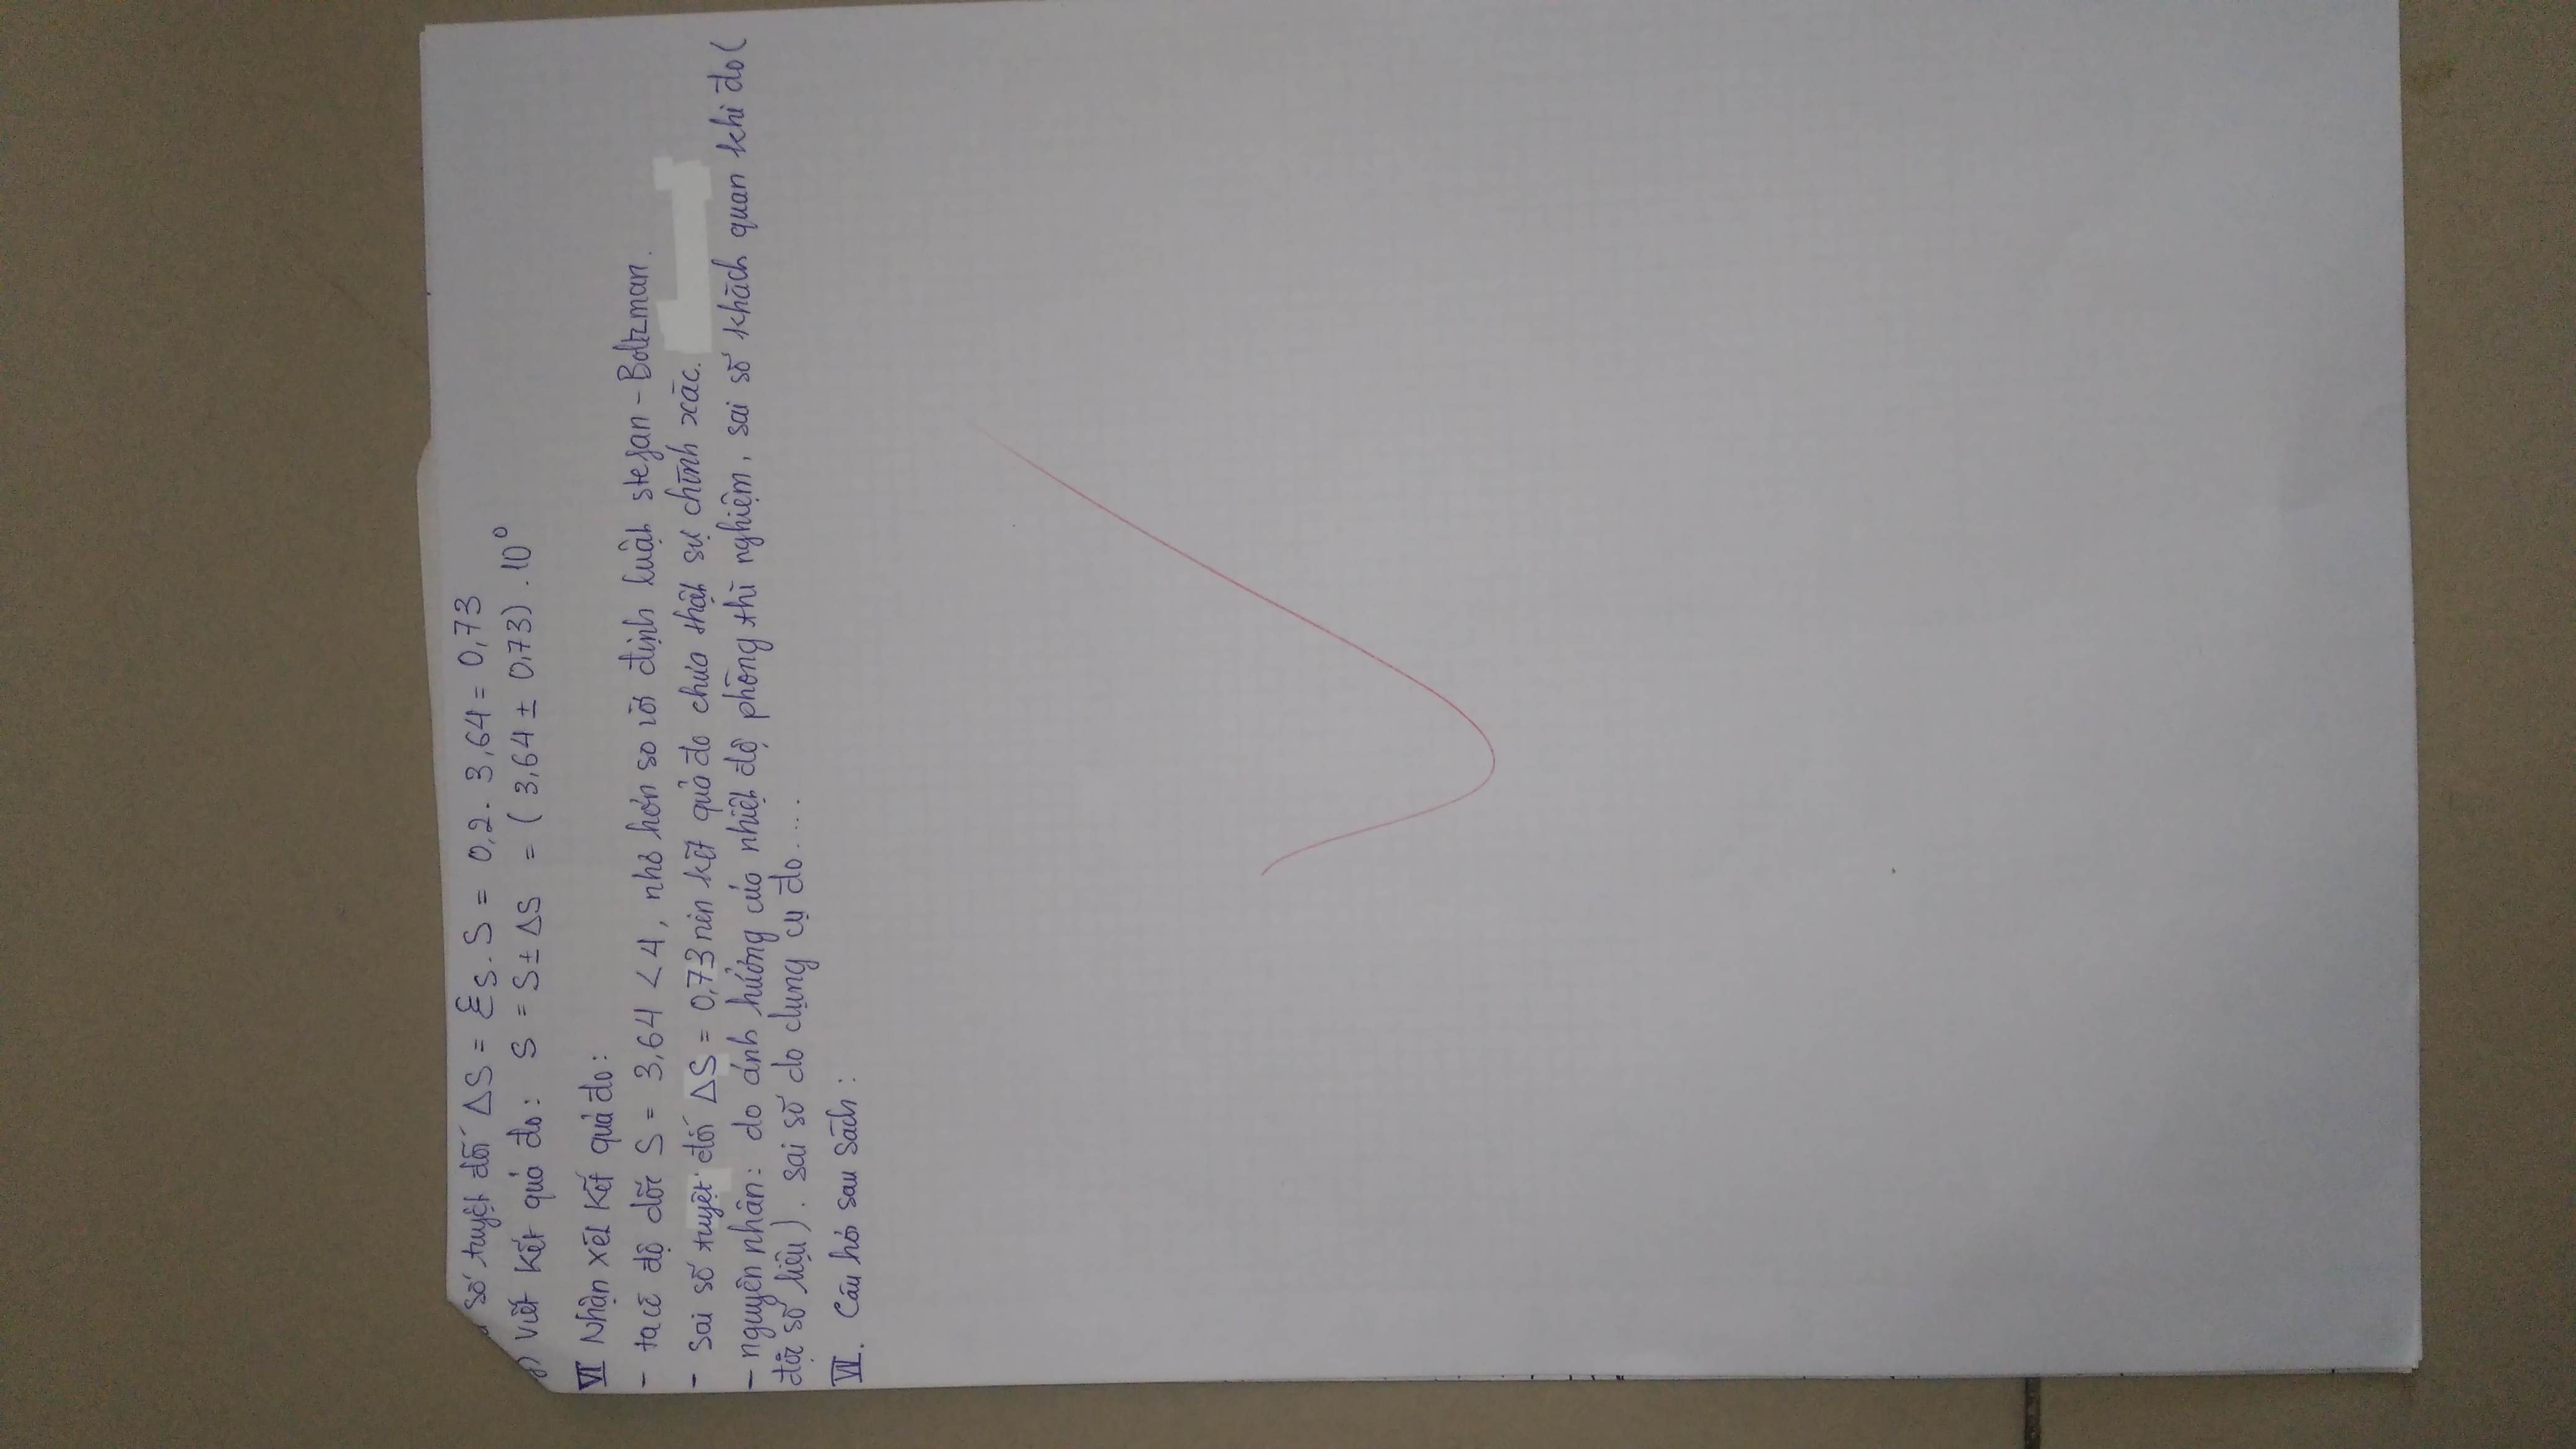 số tuyệt đối ΔS = Ɛs. S = 0,2. 3,64 = 0,73
g) Viết kết quả đo: S = S ± ΔS = (3,64 ± 0,73) . 10⁰
VI Nhận xét kết quả đo:
- ta có độ dốc S = 3,64 < 4, nhỏ hơn so với định luật stefan - Boltzman.
- sai số tuyệt đối ΔS = 0,73 nên kết quả đo chưa thật sự chính xác.
- nguyên nhân: do ảnh hưởng của nhiệt độ phòng thí nghiệm, sai số khách quan khi đo (
đọc số liệu). sai số do dụng cụ đo....
VII. Câu hỏi sau sách: